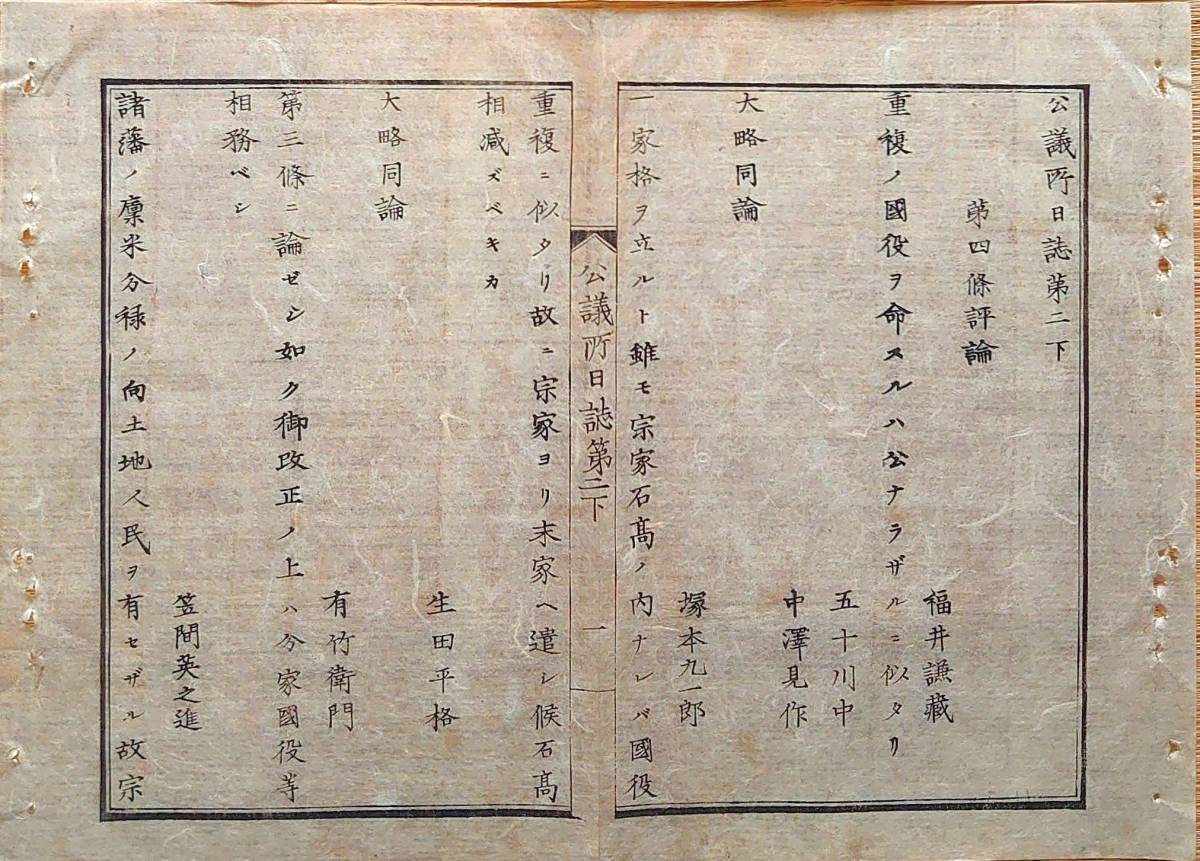 公議所日誌第二下
第四條評論
福井謙藏
重複ノ國役ヲ命スルハ公ナラザルニ似タリ
五十川中
中澤見作
大略同論
塚本九一郎
一家格ヲ立ルト雖モ宗家石高ノ内ナレバ國役
公議所日誌第二下 一
重複ニ似タリ故ニ宗家ヨリ末家ヘ遣シ候石高
相减ズベキカ
生田平格
大略同論
有竹衛門
第三條ニ論ゼシ如ク御改正ノ上ハ分家國役等
相務ベシ
笠間英之進
諸藩ノ廩米分禄ノ向土地人民ヲ有セザル故宗